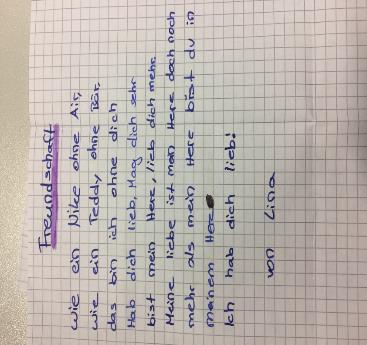 Freundschaft
Wie ein Nike ohne Air,
wie ein Teddy ohne Bär,
das bin ich ohne dich
Hab dich lieb, Mag dich sehr
bist mein Here, lieb dich mehr
Meine liebe ist man Here doch noch
mehr als mein Here bist du in
meinem Here
Ich hab dich lieb!
von Lina